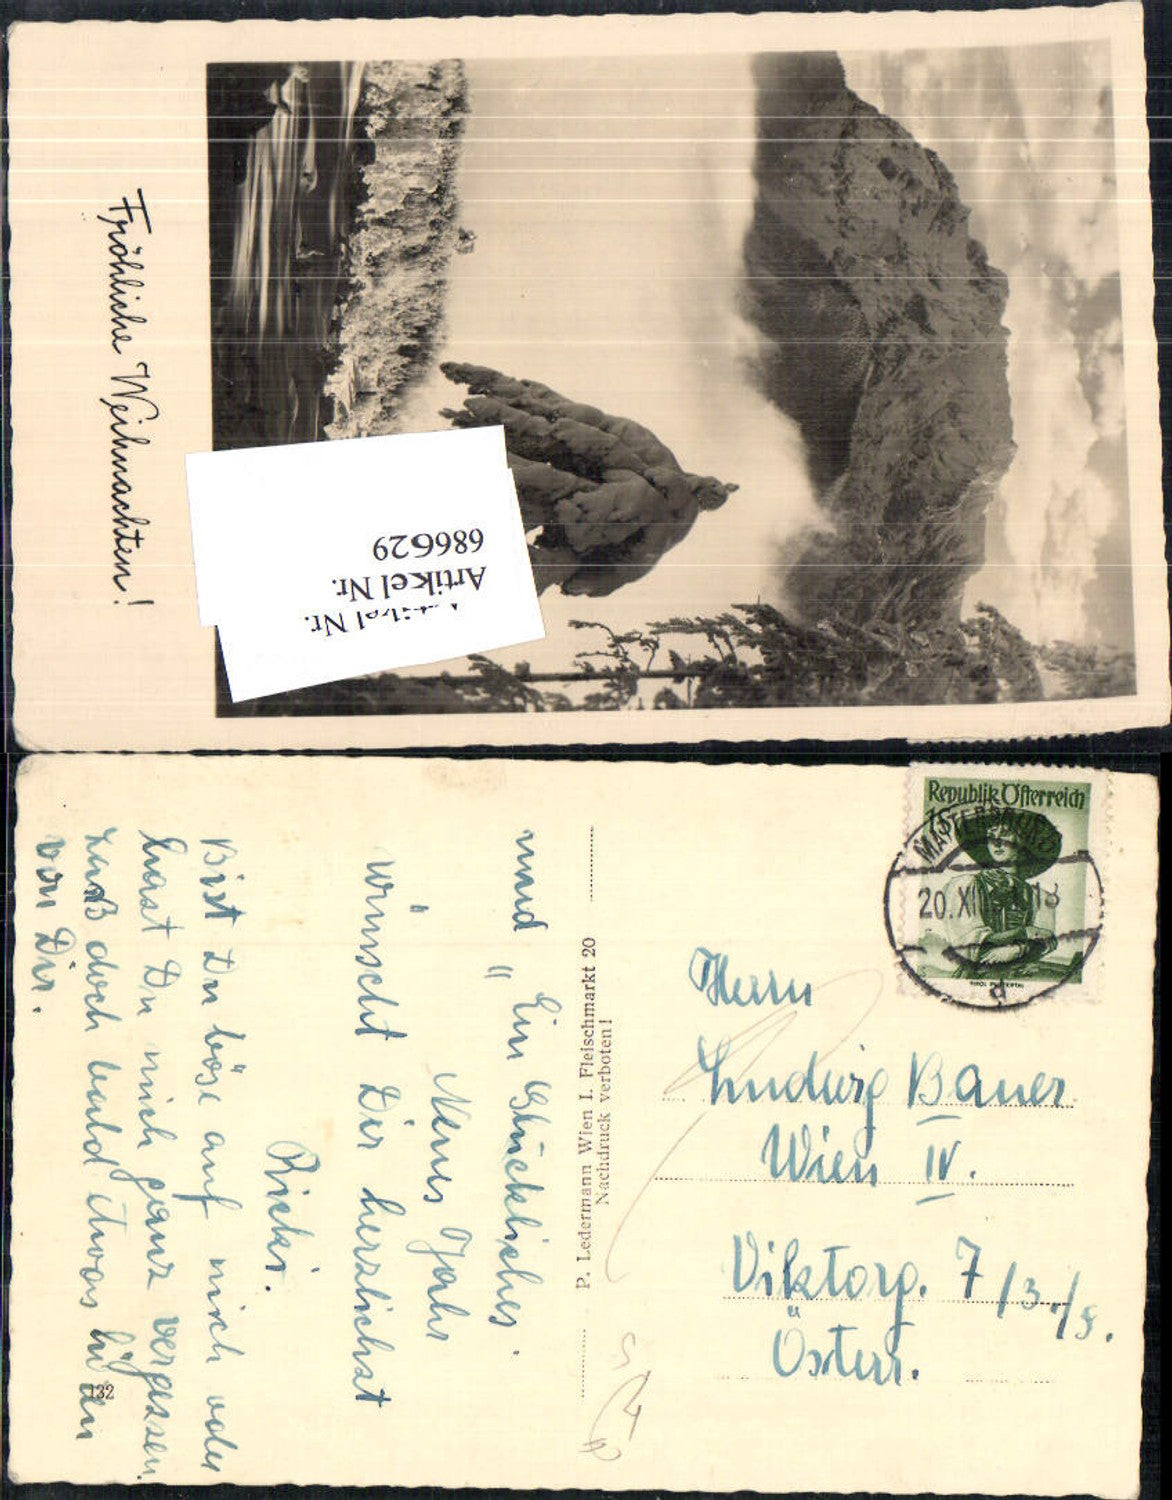 Fröhliche Weihnachten!
686629
Artikel Nr.
Artikel Nr.
und "Ein Glückliches
Neues Jahr
wünscht Dir herzlichst
Ricki.
Bist Du böse auf mich oder
hast Du mich ganz vergessen.
Laß doch bald etwas hören
von Dir.
132
P. Ledermann Wien I. Fleischmarkt 20
Nachdruck verboten!
Republik Österreich
MATTERSBURG
20.XII
18
d
Herrn
Ludwig Bauer
Wien IV.
Viktorg. 7/3./8.
Österr.